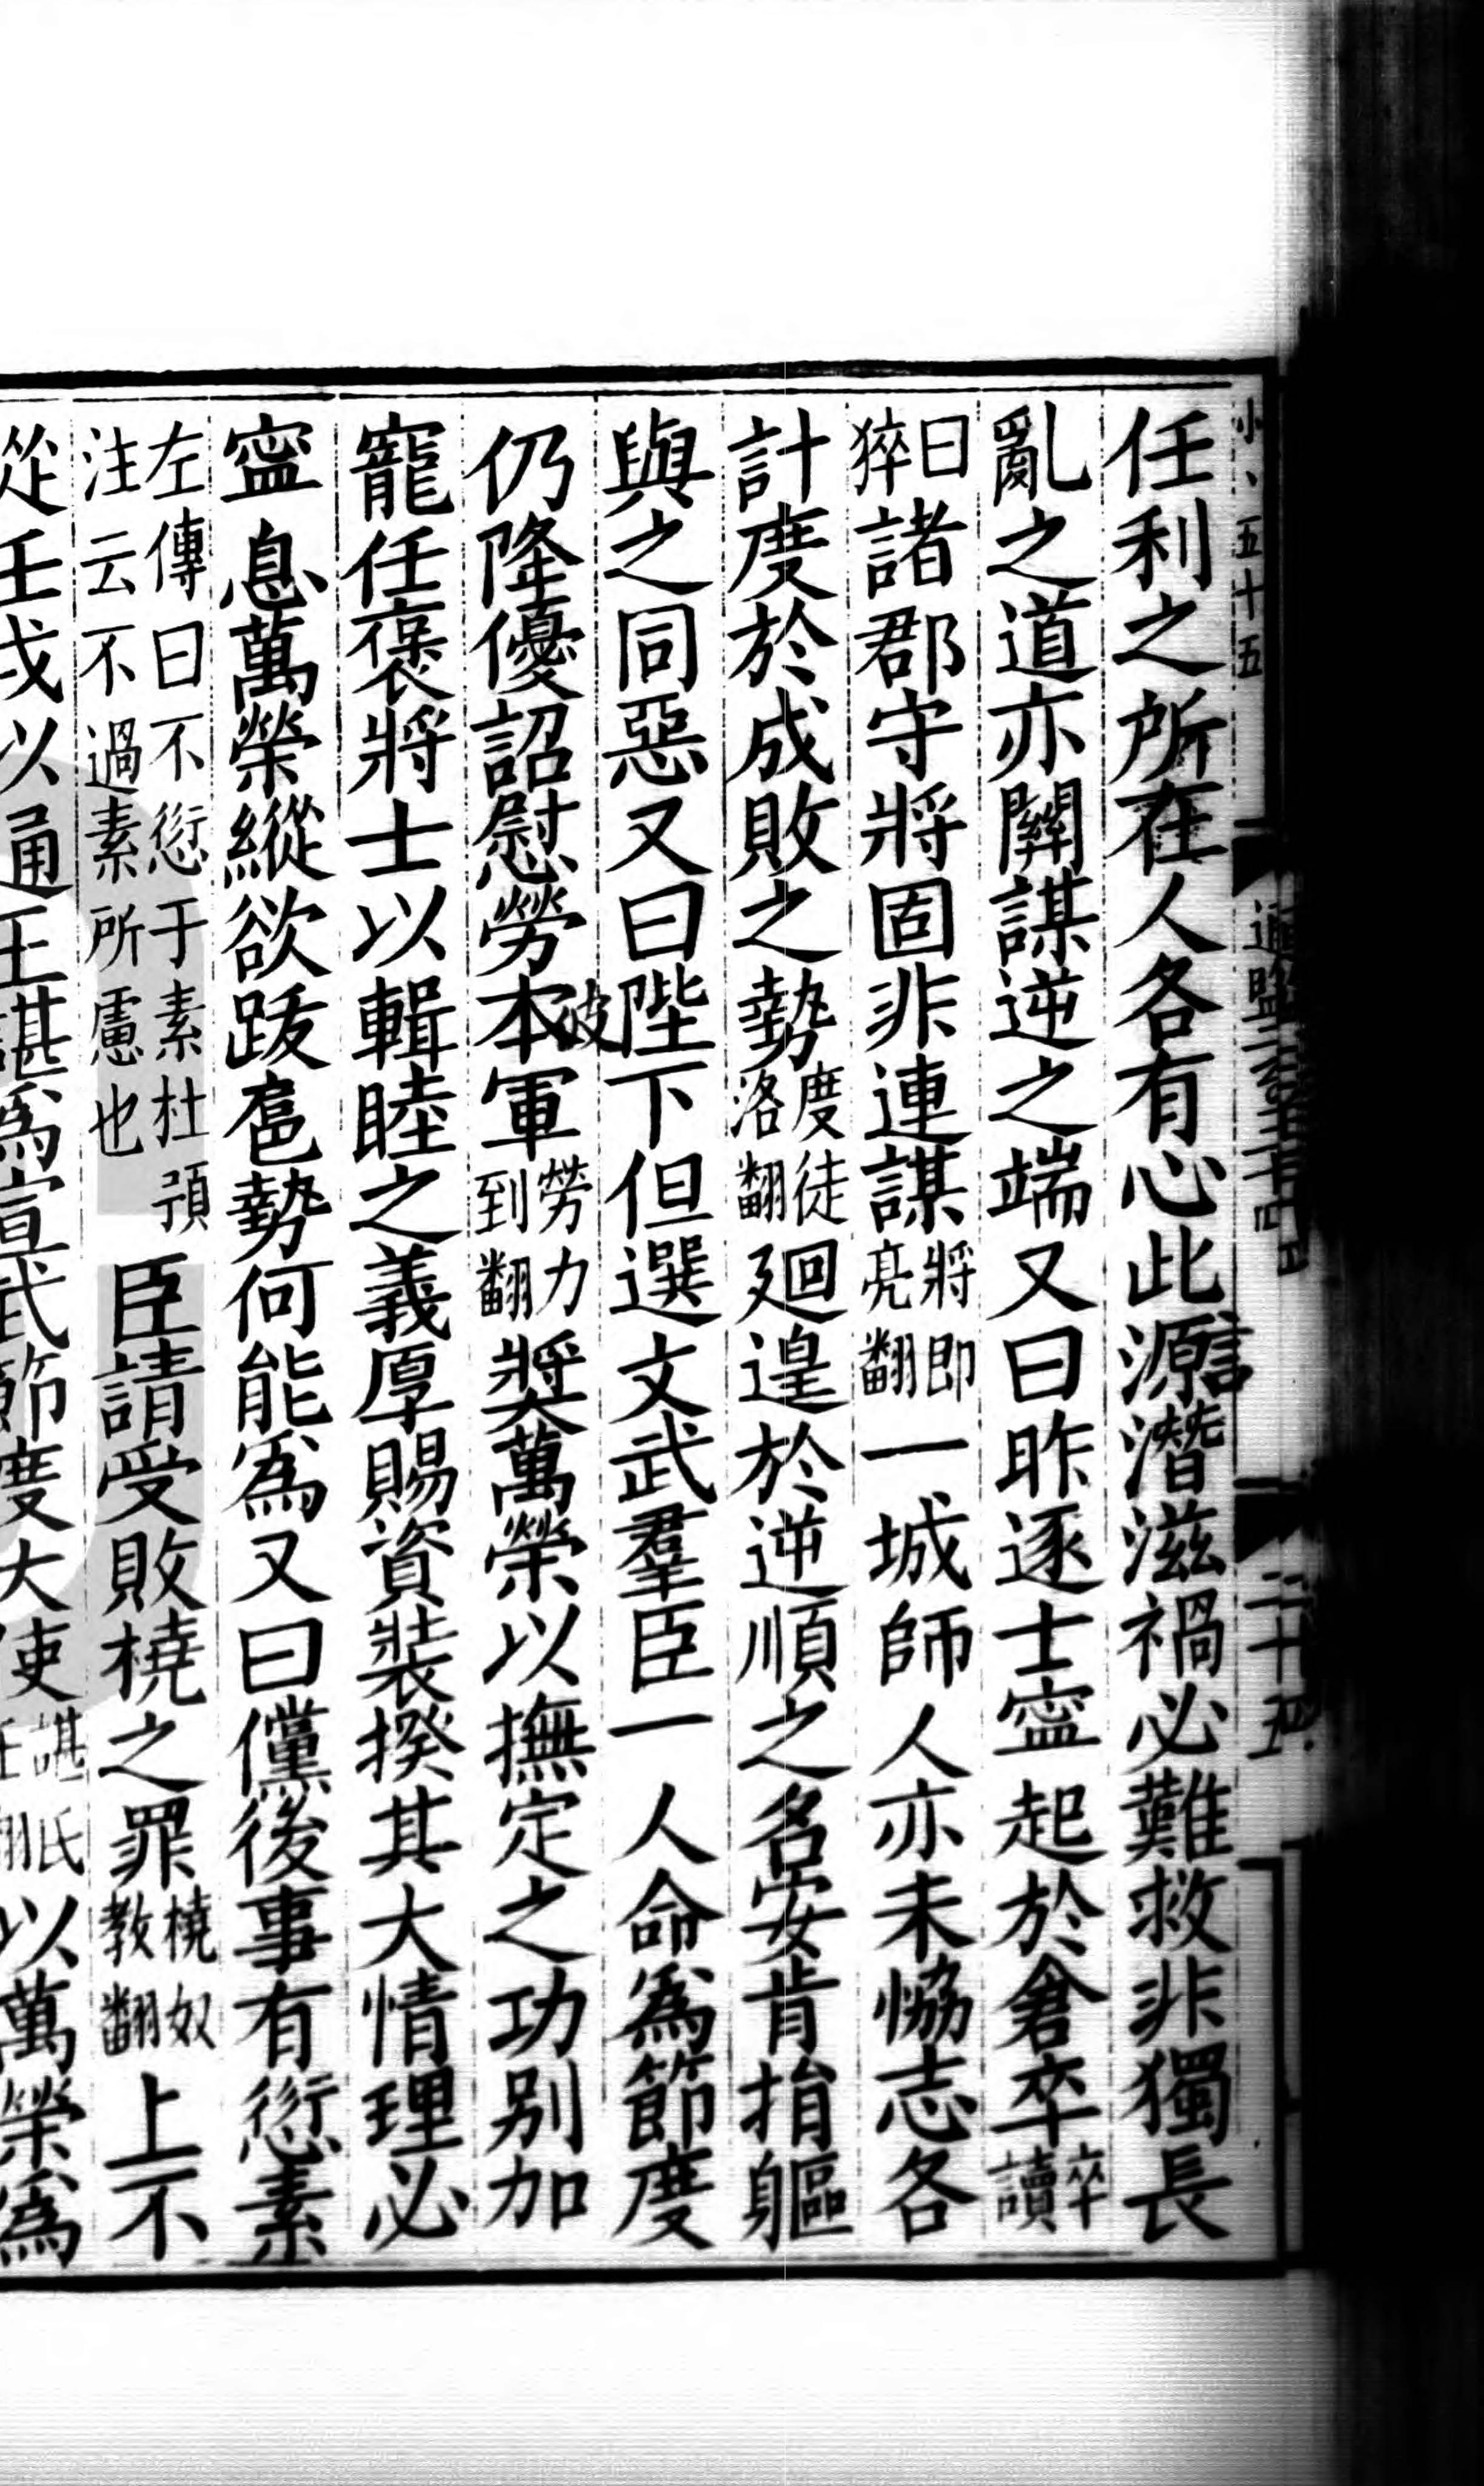 小、五十五
任利之所在人各有心此源潛滋禍必難救非獨長
亂之道亦關謀逆之端又曰昨逐士寧起於倉卒卒讀
曰猝諸郡守將固非連謀將即亮翻一城師人亦未恊志各
計度於成敗之勢度徒洛翻廻遑於逆順之名安肯捐軀
與之同惡又曰陛下但選文武羣臣一人命爲節度
仍降優詔慰勞本軍勞力到翻奬萬榮以撫定之功别加
寵任褒將士以輯睦之義厚賜資裝揆其大情理必
寧息萬榮縱欲跋扈勢何能爲又曰儻後事有愆素
左傳曰不愆于素杜預注云不過素所慮也臣請受敗橈之罪橈奴教翻上不
從壬戌以通王諶爲宣武節度大使諶氏壬翻以萬榮爲